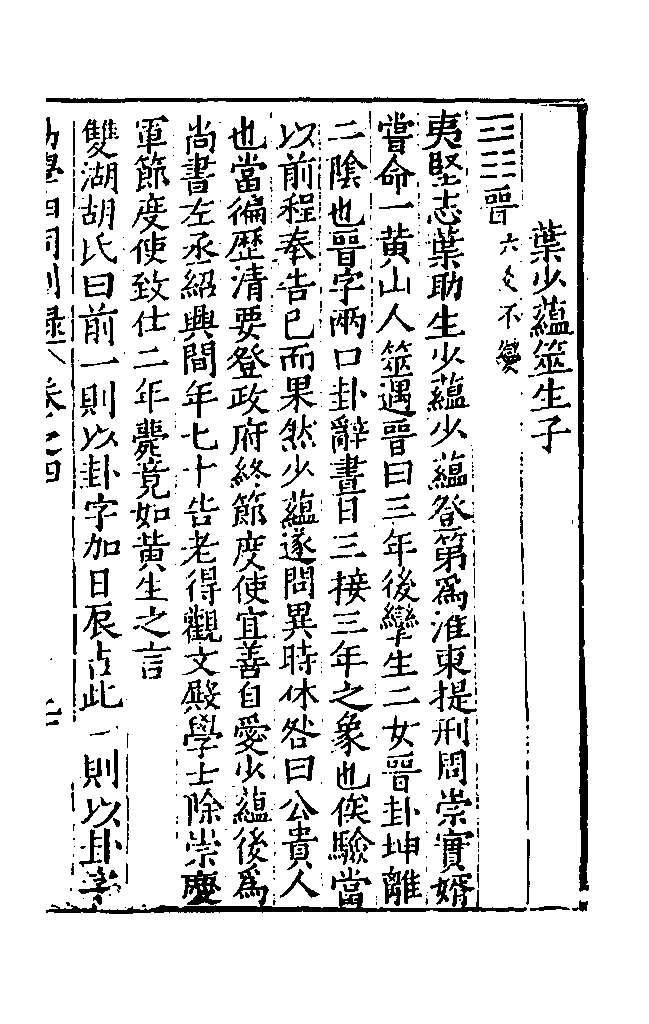 葉少蘊筮生子
晉六爻不變
夷堅志葉助生少蘊少蘊登第爲淮東提刑周崇實婿
嘗命一黄山人筮遇晉曰三年後孿生二女晉卦坤離
二陰也晉字兩口卦辭晝日三接三年之象也俟驗當
以前程奉告已而果然少蘊遂問異時休咎曰公貴人
也當徧歷清要登政府終節度使宜善自愛少蘊後爲
尚書左丞紹興間年七十告老得觀文殿學士除崇慶
軍節度使致仕二年薨竟如黄生之言
雙湖胡氏曰前一則以卦字加日辰占此一則以卦字
卷之四